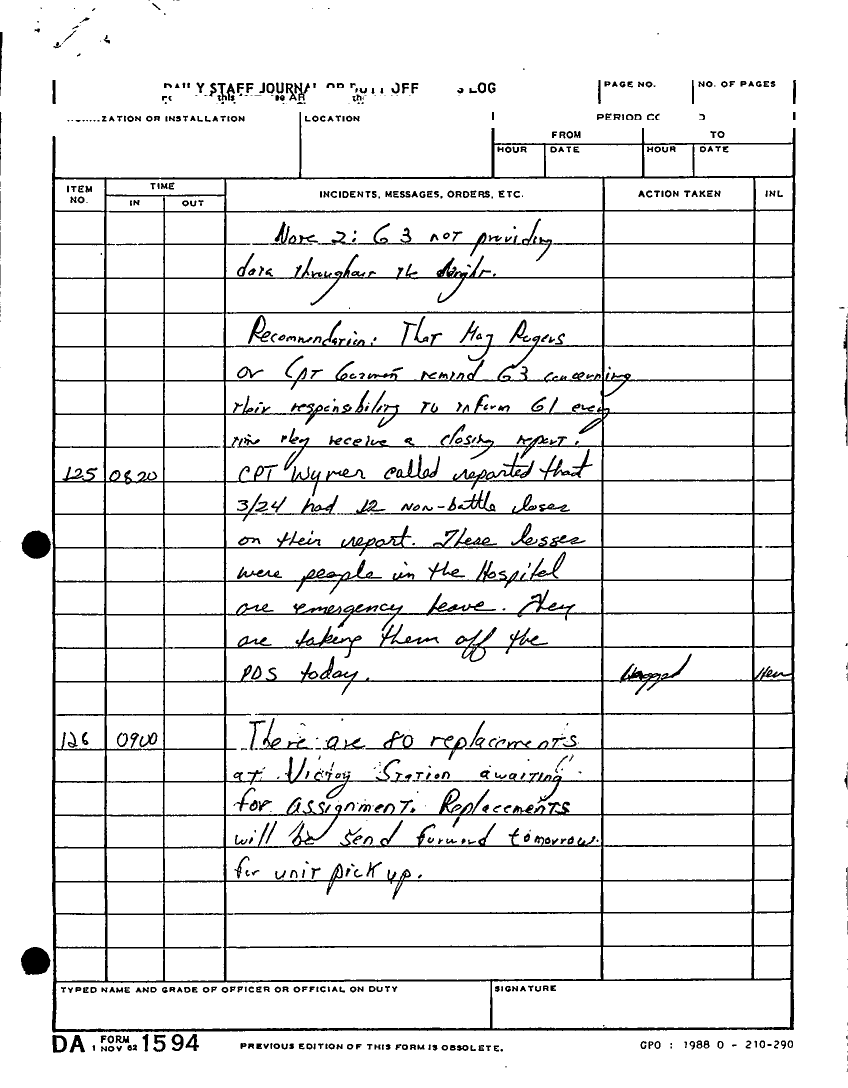 DAILY STAFF JOURNAL OR DUTY OFF LOG
PAGE NO.
NO. OF PAGES
ZATION OR INSTALLATION
LOCATION
PERIOD CO
FROM
TO
HOUR
DATE
HOUR
DATE
ITEM NO.
TIME
IN
OUT
INCIDENTS, MESSAGES, ORDERS, ETC.
ACTION TAKEN
INL
Note 2: G3 not providing
data throughout the night.
Recommendation: That Maj Rogers
or CPT remind G3 concerning
their responsibility to inform G1 every
time they receive a closing report.
125 0820 CPT Wymer called reported that
3/24 had 12 non-battle loses
on their report. These losses
were people in the Hospital
are emergency leave. They
are taking them off the
PDS today. Logged
126 0900 There are 80 replacements
at Victory Station awaiting
for assignment. Replacements
will be send forward tomorrow
for unit pick up.
TYPED NAME AND GRADE OF OFFICER OR OFFICIAL ON DUTY
SIGNATURE
DA FORM 1 NOV 62 1594
PREVIOUS EDITION OF THIS FORM IS OBSOLETE.
GPO : 1988 O - 210-290